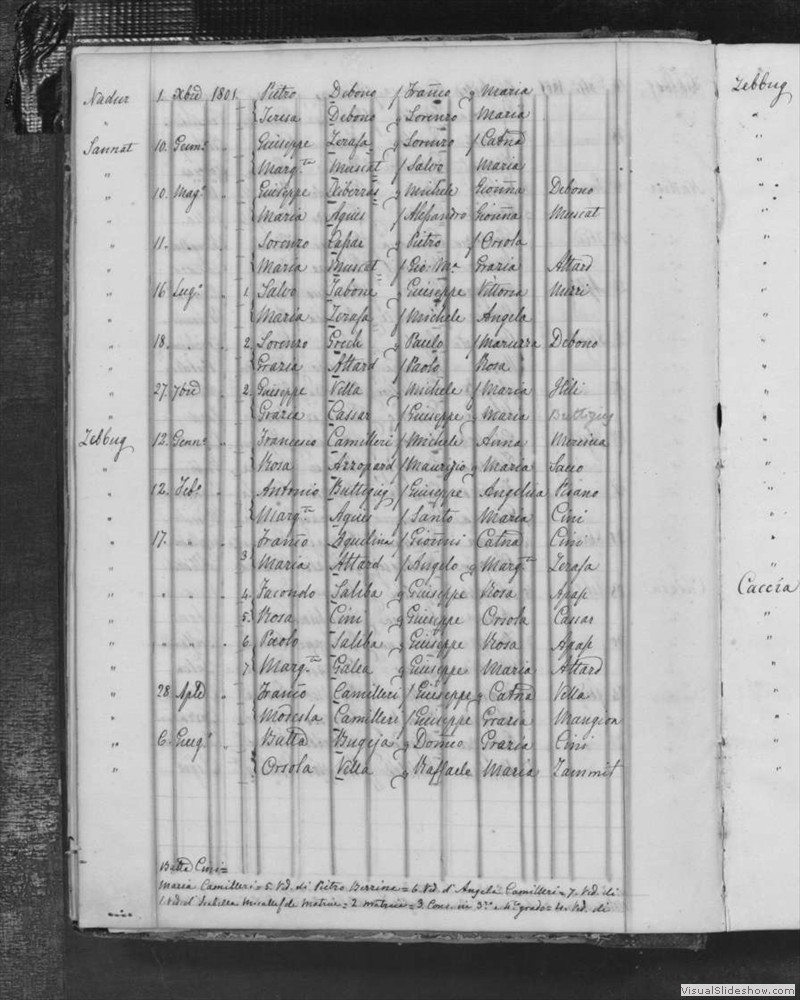 Nadur 1. Xbre 1801. Pietro Debono f Franco g Maria
" Teresa Debono g Lorenzo Maria
Sannat 10. Genn.o " Giuseppe Zerafa g Lorenzo f Catna
" Marg.ta Muscat f Salvo Maria
" 10. Mag.o " Giuseppe Xiberras g Michele Gionna Debono
" Maria Agius f Alessandro Gionna Muscat
" 11. " " Lorenzo g Pietro f Orsola
" Maria Muscat f Gio: M.a Grazia Attard
" 16 Lug.o " 1. Salvo Tabone g Giuseppe Vittoria
" Maria Zerafa f Michele Angela
" 18. " " 2. Lorenzo Grech g Paulo f Maruzza Debono
" Grazia Attard f Paolo Rosa
" 27. 7bre " 2. Giuseppe Vella g Michele f Maria
" Grazia Cassar f Giuseppe g Maria Buttigieg
Zebbug 12. Genn.o " Francesco Camilleri f Michele Anna
" Rosa Azzopard f Maurizio g Maria
" 12. Feb.o " Antonio Buttigieg f Giuseppe Angelica Pisano
" Marg.ta Agius f Santo Maria Cini
" 17. " " Franco Aquilina f Gionni Catna Cini
" 3. Maria Attard f Angelo g Marg.ta Zerafa
" " " " 4. Facondo Saliba g Giuseppe Rosa Apap
" 5. Rosa Cini g Giuseppe Orsola Cassar
" " " " 6. Paolo Saliba g Giuseppe Rosa Apap
" 7. Marg.ta Galea g Giuseppe Maria Attard
" 28 Aple " Franco Camilleri f Giuseppe g Catna Vella
" Modesta Camilleri f Giuseppe Grazia Mangion
" 6. Giug.o " Batta Bugeja g Domco Grazia Cini
" Orsola Vella g Raffaele Maria Zammit
Batta Cini =
Maria Camilleri = 5. Ved. di Pietro = 6. Ved. d'Angela Camilleri = 7. Ved. di
1. Ved. d' de Matrice = 2. matrice = 3. Cons. in 3.o e 4.o grado = 4. Ved. di
Zebbug
"
Caccia
"
VisualSlideshow.com